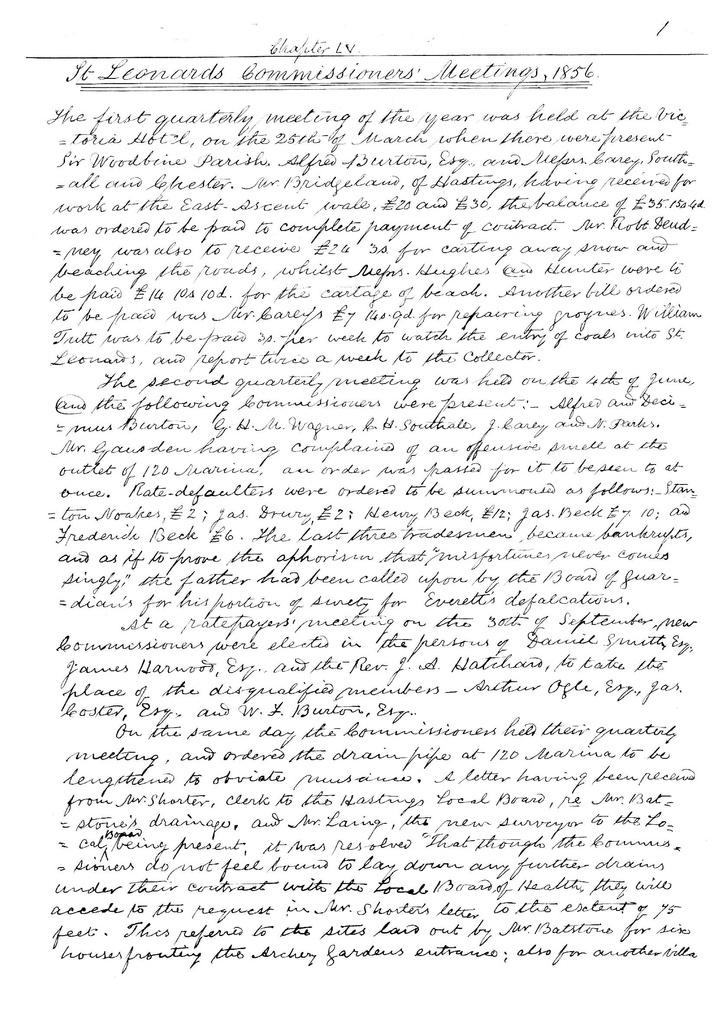 1
Chapter LV.
St Leonards Commissioners' Meetings, 1856.
The first quarterly meeting of the year was held at the Vic=
=toria Hotel, on the 25th of March when there were present
Sir Woodbine Parish. Alfred Burton, Esq. and Messrs. Carey, South=
=all and Chester. Mr. Bridgeland, of Hastings, having received for
work at the East-Ascent wale, £20 and £30, the balance of £35. 15s 4d
was ordered to be paid to complete payment of contract. Mr. Robt Deud=
=ney was also to receive £24 3s. for carting away snow and
beaching the roads, whilst Messrs. Hughes and Hunter were to
be paid £14 10s 10d. for the cartage of beach. Another bill ordered
to be paid was Mr. Carey's £7 14s. 9d for repairing groynes. William
Tutt was to be paid 3s. per week to watch the entry of coals into St.
Leonards, and report twice a week to the Collector.
The second quarterly meeting was held on the 4th of June,
and the following Commissioners were present:- Alfred and Deci=
=mus Burton, G. H. M. Wagner, C. H. Southall, J. Carey and N. Parks.
Mr. Gausden having complained of an offensive smell at the
outlet of 120 Marina, an order was passed for it to be seen to at
once. Rate-defaulters were ordered to be summoused as follows:- Stan=
=ton Noakes, £2; Jas. Drury, £2; Henry Beck, £12; Jas. Beck £7 10; and
Frederick Beck £6. The last three tradesmen became bankrupts,
and as if to prove the aphorism that "misfortunes never comes
singly," the father had been called upon by the Board of Guar=
=dians for his portion of surety for Everett's defalcations.
At a ratepayers' meeting on the 30th of September, new
Commissioners were elected in the persons of Daniel Smith, Esq.
James Harwood, Esq. and the Rev. J. A. Hatchard, to take the
place of the disqualified members - Arthur Ogle, Esq., Jas.
Coster, Esq. and W. F. Burton, Esq.
On the same day the Commissioners held their quarterly
meeting, and ordered the drain pipe at 120 Marina to be
lengthened to obviate nuisance. A letter having been received
from Mr. Shorter, clerk to the Hastings Local Board, re Mr. Bat=
=stone's drainage, and Mr. Laing, the new surveyor to the Lo=
=cal Board being present, it was resolved "That though the Commis=
=sioners do not feel bound to lay down any further drains
under their contract with the Local Board of Health, they will
accede to the request in Mr. Shorter's letter to the extent of 75
feet. This referred to the sites laid out by Mr. Batstone for six
houses fronting the Archery Gardens entrance; also for another villa